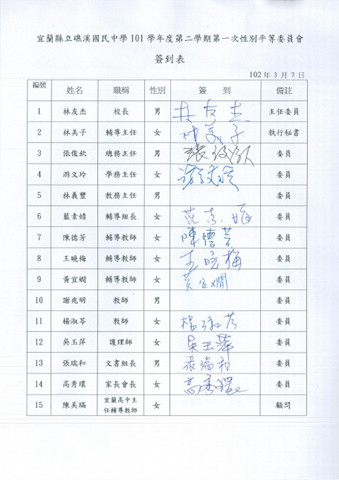 宜蘭縣立礁溪國民中學 101 學年度第二學期第一次性別平等委員會
簽到表
102 年 3 月 7 日
編號 姓名 職稱 性別 簽到 備註
1 林友杰 校長 男 林友杰 主任委員
2 林美子 輔導主任 女 林美子 執行秘書
3 張俊欽 總務主任 男 張俊欽 委員
4 游文玲 學務主任 女 游文玲 委員
5 林義豐 教務主任 男 委員
6 藍素婧 輔導組長 女 委員
7 陳德芳 輔導教師 女 陳德芳 委員
8 王曉梅 輔導教師 女 王曉梅 委員
9 黃宜嫺 輔導教師 女 黃宜嫺 委員
10 謝兆明 教師 男 委員
11 楊淑苓 教師 女 委員
12 吳玉萍 護理師 女 吳玉萍 委員
13 張瑞和 文書組長 男 張瑞和 委員
14 高秀環 家長會長 女 高秀環 委員
15 陳美瑀 宜蘭高中主任輔導教師 女 顧問